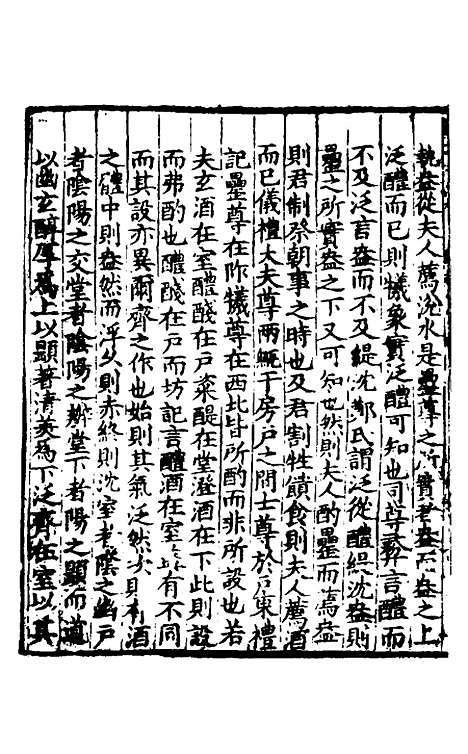 執盎從夫人薦涗水是罍尊之所實者盎而盎之上
泛醴而已則犧象實泛醴可知也司尊彝言醴而
不及泛言盎而不及緹沈鄭氏謂泛從醴緹沈盎則
罍之所實盎之下又可知也然則夫人酌罍而薦盎
則君制祭朝事之時也及君割牲饋食則夫人薦酒
而已儀禮大夫尊兩甒于房戶之間士尊於戶東禮
記罍尊在阼犧尊在西此皆所酌而非所設也若
夫玄酒在室醴醆在戶粢醍在堂澄酒在下此則設
而弗酌也醴醆在戶而坊記言醴酒在室蓋有不同
而其設亦異爾齊之作也始則其氣泛然次則有酒
之體中則盎然而浮久則赤終則沈室者陰之幽戶
者陰陽之交堂者陰陽之辨堂下者陽之顯而道
以幽玄醇厚為上以顯著清美為下泛齊在室以其